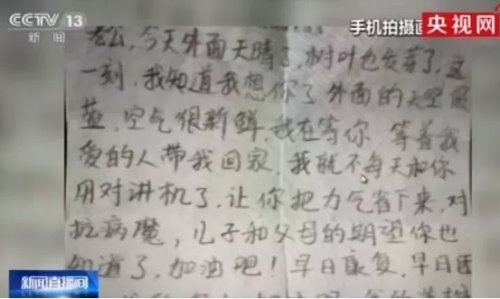 CCTV 13
新闻
手机拍摄画
央视网
老公,今天外面天晴了,树叶也发芽了,这
一刻,我知道我想你了外面的天空很
蓝,空气很新鲜,我在等你,等着我
爱的人带我回家,我就不每天和你
用对讲机了,让你把力气省下来,对
抗病魔,儿子和父母的期望你也
知道了,加油吧!早日康复,早日团
新闻直播间